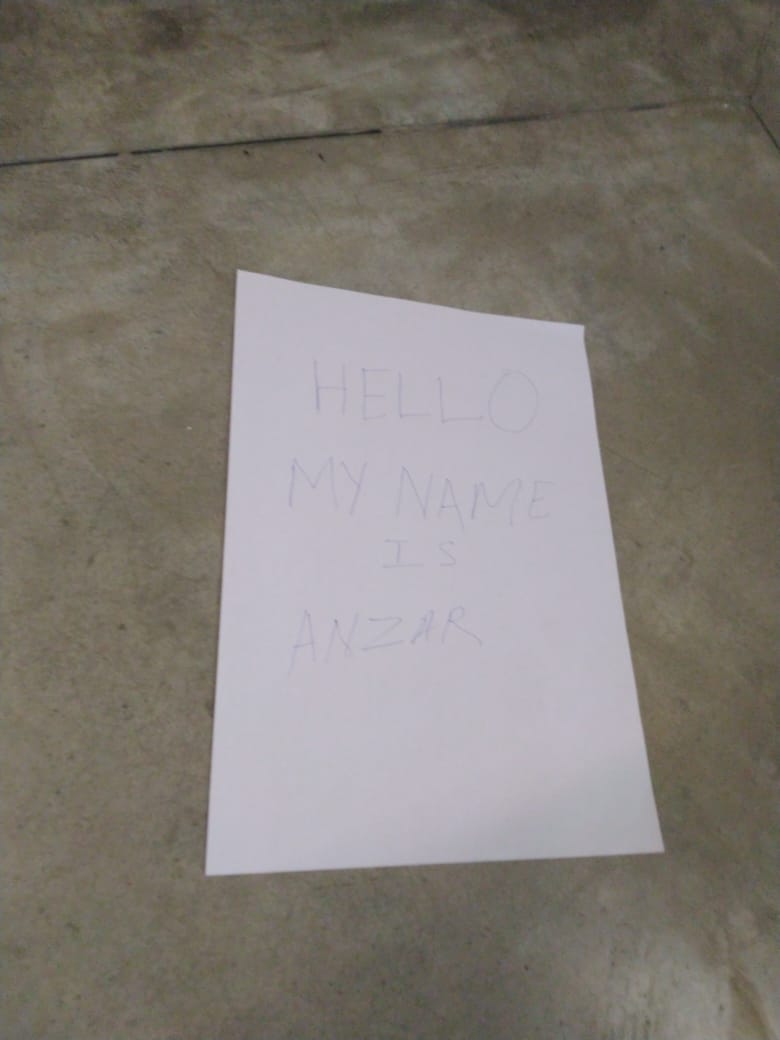 HELLO
MY NAME
IS
ANZAR